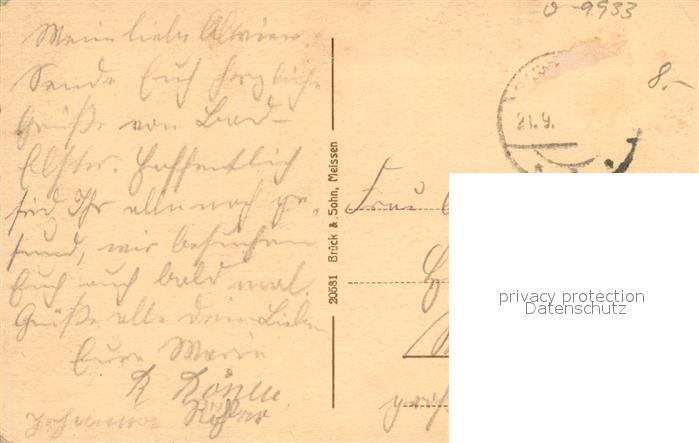 Mein liebe
Sende Euch herzliche
Grüße von Bad-
Elster. Hoffentlich
seid Ihr alle noch ge-
sund, wir besuchen
Euch auch bald mal.
Grüße alle Deine Lieben
Eure Marie
Johanna
20581 Brück & Sohn, Meissen
9.933
8.-
21.9.
Frau
privacy protection
Datenschutz